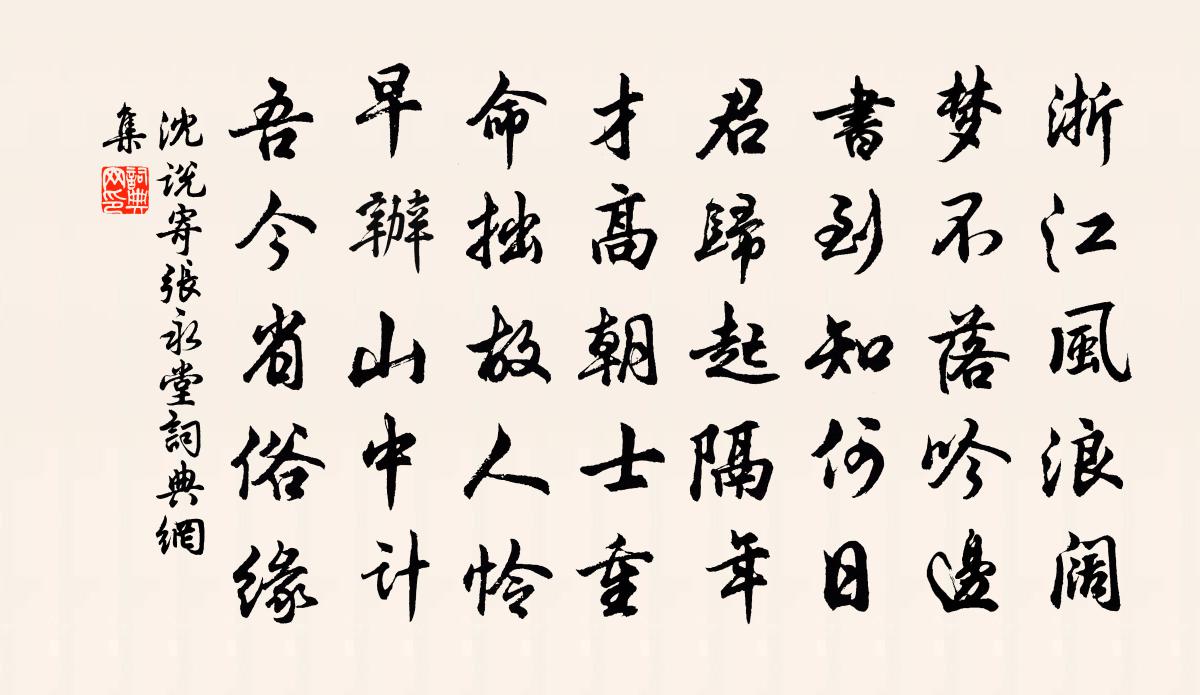 浙江風浪闊
梦不落吟邊
書到知何日
君歸起隔年
才高朝士重
命拙故人怜
早辦山中计
吾今省俗緣
沈说寄張永堂詞典網
集
詞典
网印